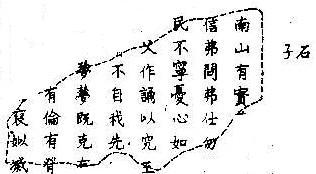 石
子
南山有實
信弗問弗仕勿
民不寧憂心如
父作誦以究
不自我先
夢夢既克
有倫有脊
褒姒滅